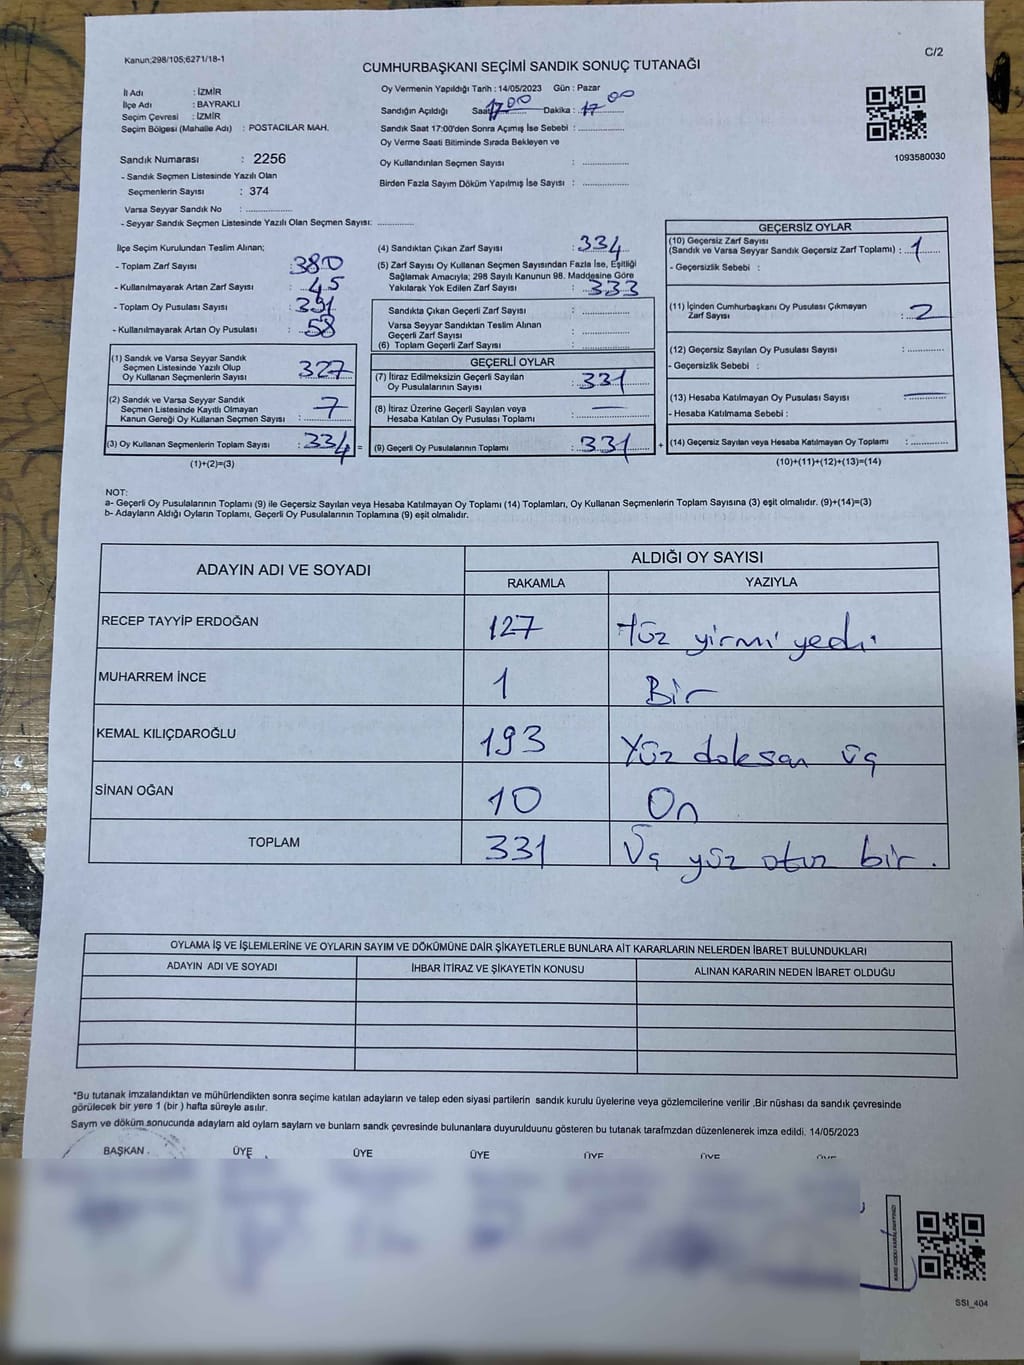 Kanun;298/105;6271/18-1
C/2
CUMHURBAŞKANI SEÇİMİ SANDIK SONUÇ TUTANAĞI
İl Adı : İZMİR
İlçe Adı : BAYRAKLI
Seçim Çevresi : İZMİR
Seçim Bölgesi (Mahalle Adı) : POSTACILAR MAH.
Oy Vermenin Yapıldığı Tarih : 14/05/2023 Gün : Pazar
Sandığın Açıldığı Saat 17 00 Dakika : 17 00
Sandık Saat 17:00'den Sonra Açımış İse Sebebi :
Oy Verme Saati Bitiminde Sırada Bekleyen ve
Oy Kullandırılan Seçmen Sayısı :
Birden Fazla Sayım Döküm Yapılmış İse Sayısı :
1093580030
Sandık Numarası : 2256
- Sandık Seçmen Listesinde Yazılı Olan
Seçmenlerin Sayısı : 374
Varsa Seyyar Sandık No :
- Seyyar Sandık Seçmen Listesinde Yazılı Olan Seçmen Sayısı:
İlçe Seçim Kurulundan Teslim Alınan;
- Toplam Zarf Sayısı : 380
- Kullanılmayarak Artan Zarf Sayısı : 45
- Toplam Oy Pusulası Sayısı : 391
- Kullanılmayarak Artan Oy Pusulası : 58
(1) Sandık ve Varsa Seyyar Sandık
Seçmen Listesinde Yazılı Olup
Oy Kullanan Seçmenlerin Sayısı : 327
(2) Sandık ve Varsa Seyyar Sandık
Seçmen Listesinde Kayıtlı Olmayan
Kanun Gereği Oy Kullanan Seçmen Sayısı : 7
(3) Oy Kullanan Seçmenlerin Toplam Sayısı : 334 =
(1)+(2)=(3)
(4) Sandıktan Çıkan Zarf Sayısı : 334
(5) Zarf Sayısı Oy Kullanan Seçmen Sayısından Fazla İse, Eşitliği
Sağlamak Amacıyla; 298 Sayılı Kanunun 98. Maddesine Göre
Yakılarak Yok Edilen Zarf Sayısı : 333
Sandıkta Çıkan Geçerli Zarf Sayısı :
Varsa Seyyar Sandıktan Teslim Alınan
Geçerli Zarf Sayısı :
(6) Toplam Geçerli Zarf Sayısı :
GEÇERLİ OYLAR
(7) İtiraz Edilmeksizin Geçerli Sayılan
Oy Pusulalarının Sayısı : 331
(8) İtiraz Üzerine Geçerli Sayılan veya
Hesaba Katılan Oy Pusulası Toplamı : —
(9) Geçerli Oy Pusulalarının Toplamı : 331 +
GEÇERSİZ OYLAR
(10) Geçersiz Zarf Sayısı
(Sandık ve Varsa Seyyar Sandık Geçersiz Zarf Toplamı) : 1
- Geçersizlik Sebebi :
(11) İçinden Cumhurbaşkanı Oy Pusulası Çıkmayan
Zarf Sayısı : 2
(12) Geçersiz Sayılan Oy Pusulası Sayısı :
- Geçersizlik Sebebi :
(13) Hesaba Katılmayan Oy Pusulası Sayısı : —
- Hesaba Katılmama Sebebi :
(14) Geçersiz Sayılan veya Hesaba Katılmayan Oy Toplamı :
(10)+(11)+(12)+(13)=(14)
NOT:
a- Geçerli Oy Pusulalarının Toplamı (9) ile Geçersiz Sayılan veya Hesaba Katılmayan Oy Toplamı (14) Toplamları, Oy Kullanan Seçmenlerin Toplam Sayısına (3) eşit olmalıdır. (9)+(14)=(3)
b- Adayların Aldığı Oyların Toplamı, Geçerli Oy Pusulalarının Toplamına (9) eşit olmalıdır.
ADAYIN ADI VE SOYADI
ALDIĞI OY SAYISI
RAKAMLA YAZIYLA
RECEP TAYYİP ERDOĞAN 127 Yüz yirmi yedi.
MUHARREM İNCE 1 Bir
KEMAL KILIÇDAROĞLU 193 Yüz doksan üç
SİNAN OĞAN 10 On
TOPLAM 331 Üç yüz otuz bir.
OYLAMA İŞ VE İŞLEMLERİNE VE OYLARIN SAYIM VE DÖKÜMÜNE DAİR ŞİKAYETLERLE BUNLARA AİT KARARLARIN NELERDEN İBARET BULUNDUKLARI
ADAYIN ADI VE SOYADI İHBAR İTİRAZ VE ŞİKAYETİN KONUSU ALINAN KARARIN NEDEN İBARET OLDUĞU
*Bu tutanak imzalandıktan ve mühürlendikten sonra seçime katılan adayların ve talep eden siyasi partilerin sandık kurulu üyelerine veya gözlemcilerine verilir .Bir nüshası da sandık çevresinde
görülecek bir yere 1 (bir ) hafta süreyle asılır.
Sayım ve döküm sonucunda adayların ald oyların sayıları ve bunların sandk çevresinde bulunanlara duyurulduunu gösteren bu tutanak tarafmzdan düzenlenerek imza edildi. 14/05/2023
BAŞKAN ÜYE ÜYE ÜYE ÜYE ÜYE ÜYE
SSI_404